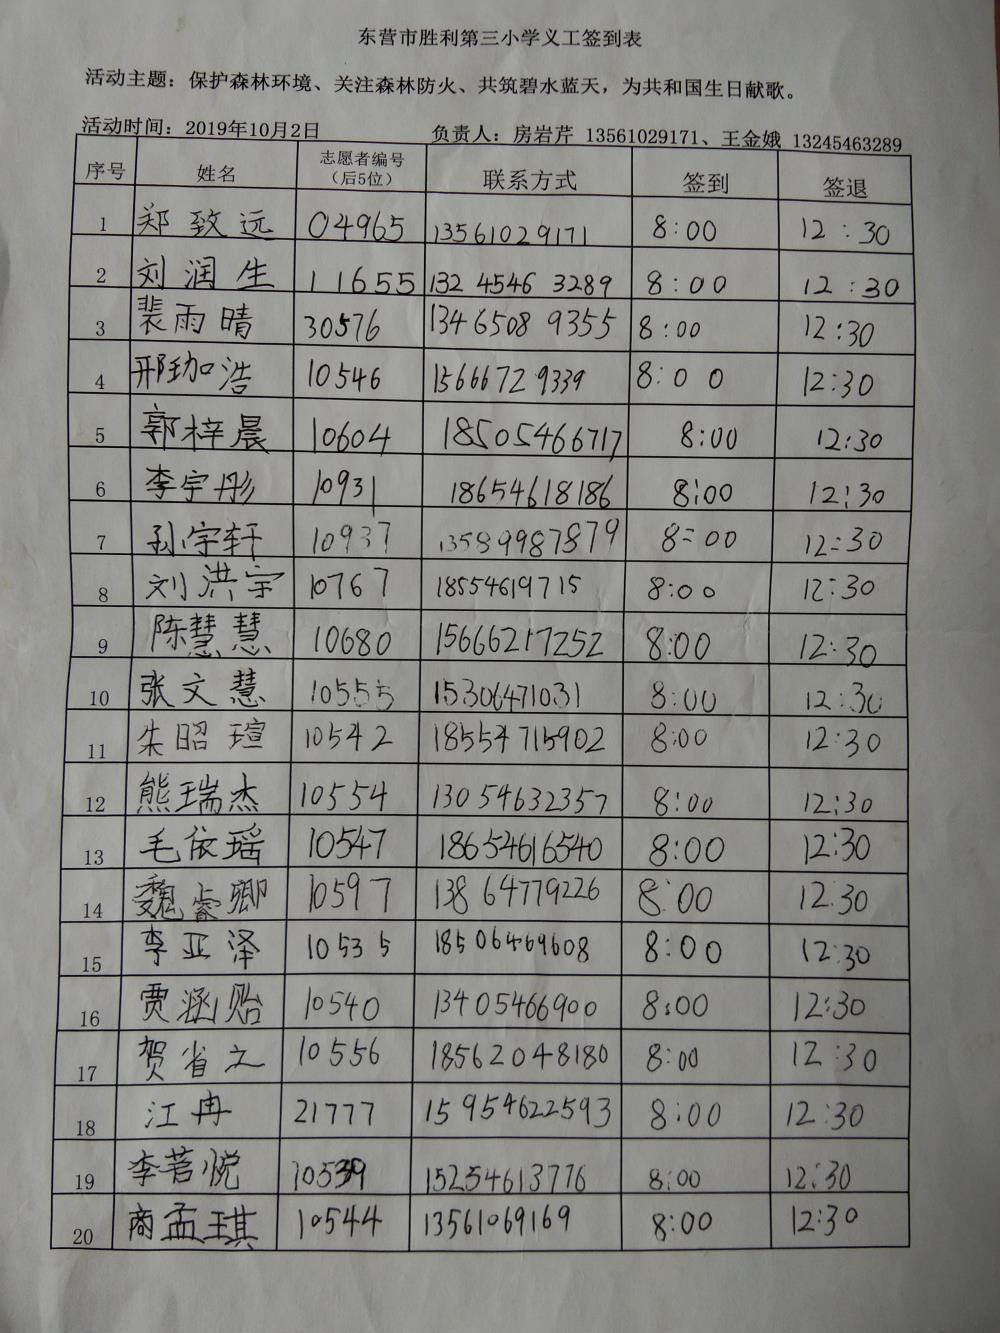 东营市胜利第三小学义工签到表
活动主题：保护森林环境、关注森林防火、共筑碧水蓝天，为共和国生日献歌。
活动时间：2019年10月2日 负责人：房岩芹 13561029171、王金娥 13245463289
序号 姓名 志愿者编号（后5位） 联系方式 签到 签退
1 郑致远 04965 13561029171 8:00 12:30
2 刘润生 11655 13245463289 8:00 12:30
3 裴雨晴 30576 13465089355 8:00 12:30
4 邢珈浩 10546 15666729339 8:00 12:30
5 郭梓晨 10604 18505466717 8:00 12:30
6 李宇彤 10931 18654618186 8:00 12:30
7 孙宇轩 10937 13589987879 8:00 12:30
8 刘洪宇 10767 18554619715 8:00 12:30
9 陈慧慧 10680 15666217252 8:00 12:30
10 张文慧 10555 15306471031 8:00 12:30
11 朱昭瑄 10542 18554715902 8:00 12:30
12 熊瑞杰 10554 13054632357 8:00 12:30
13 毛依瑶 10547 18654616540 8:00 12:30
14 魏睿卿 10597 13864779226 8:00 12:30
15 李亚泽 10535 18506469608 8:00 12:30
16 贾涵贻 10540 13405466900 8:00 12:30
17 贺省之 10556 18562048180 8:00 12:30
18 江冉 21777 15954622593 8:00 12:30
19 李若悦 10539 15254613776 8:00 12:30
20 商孟琪 10544 13561069169 8:00 12:30